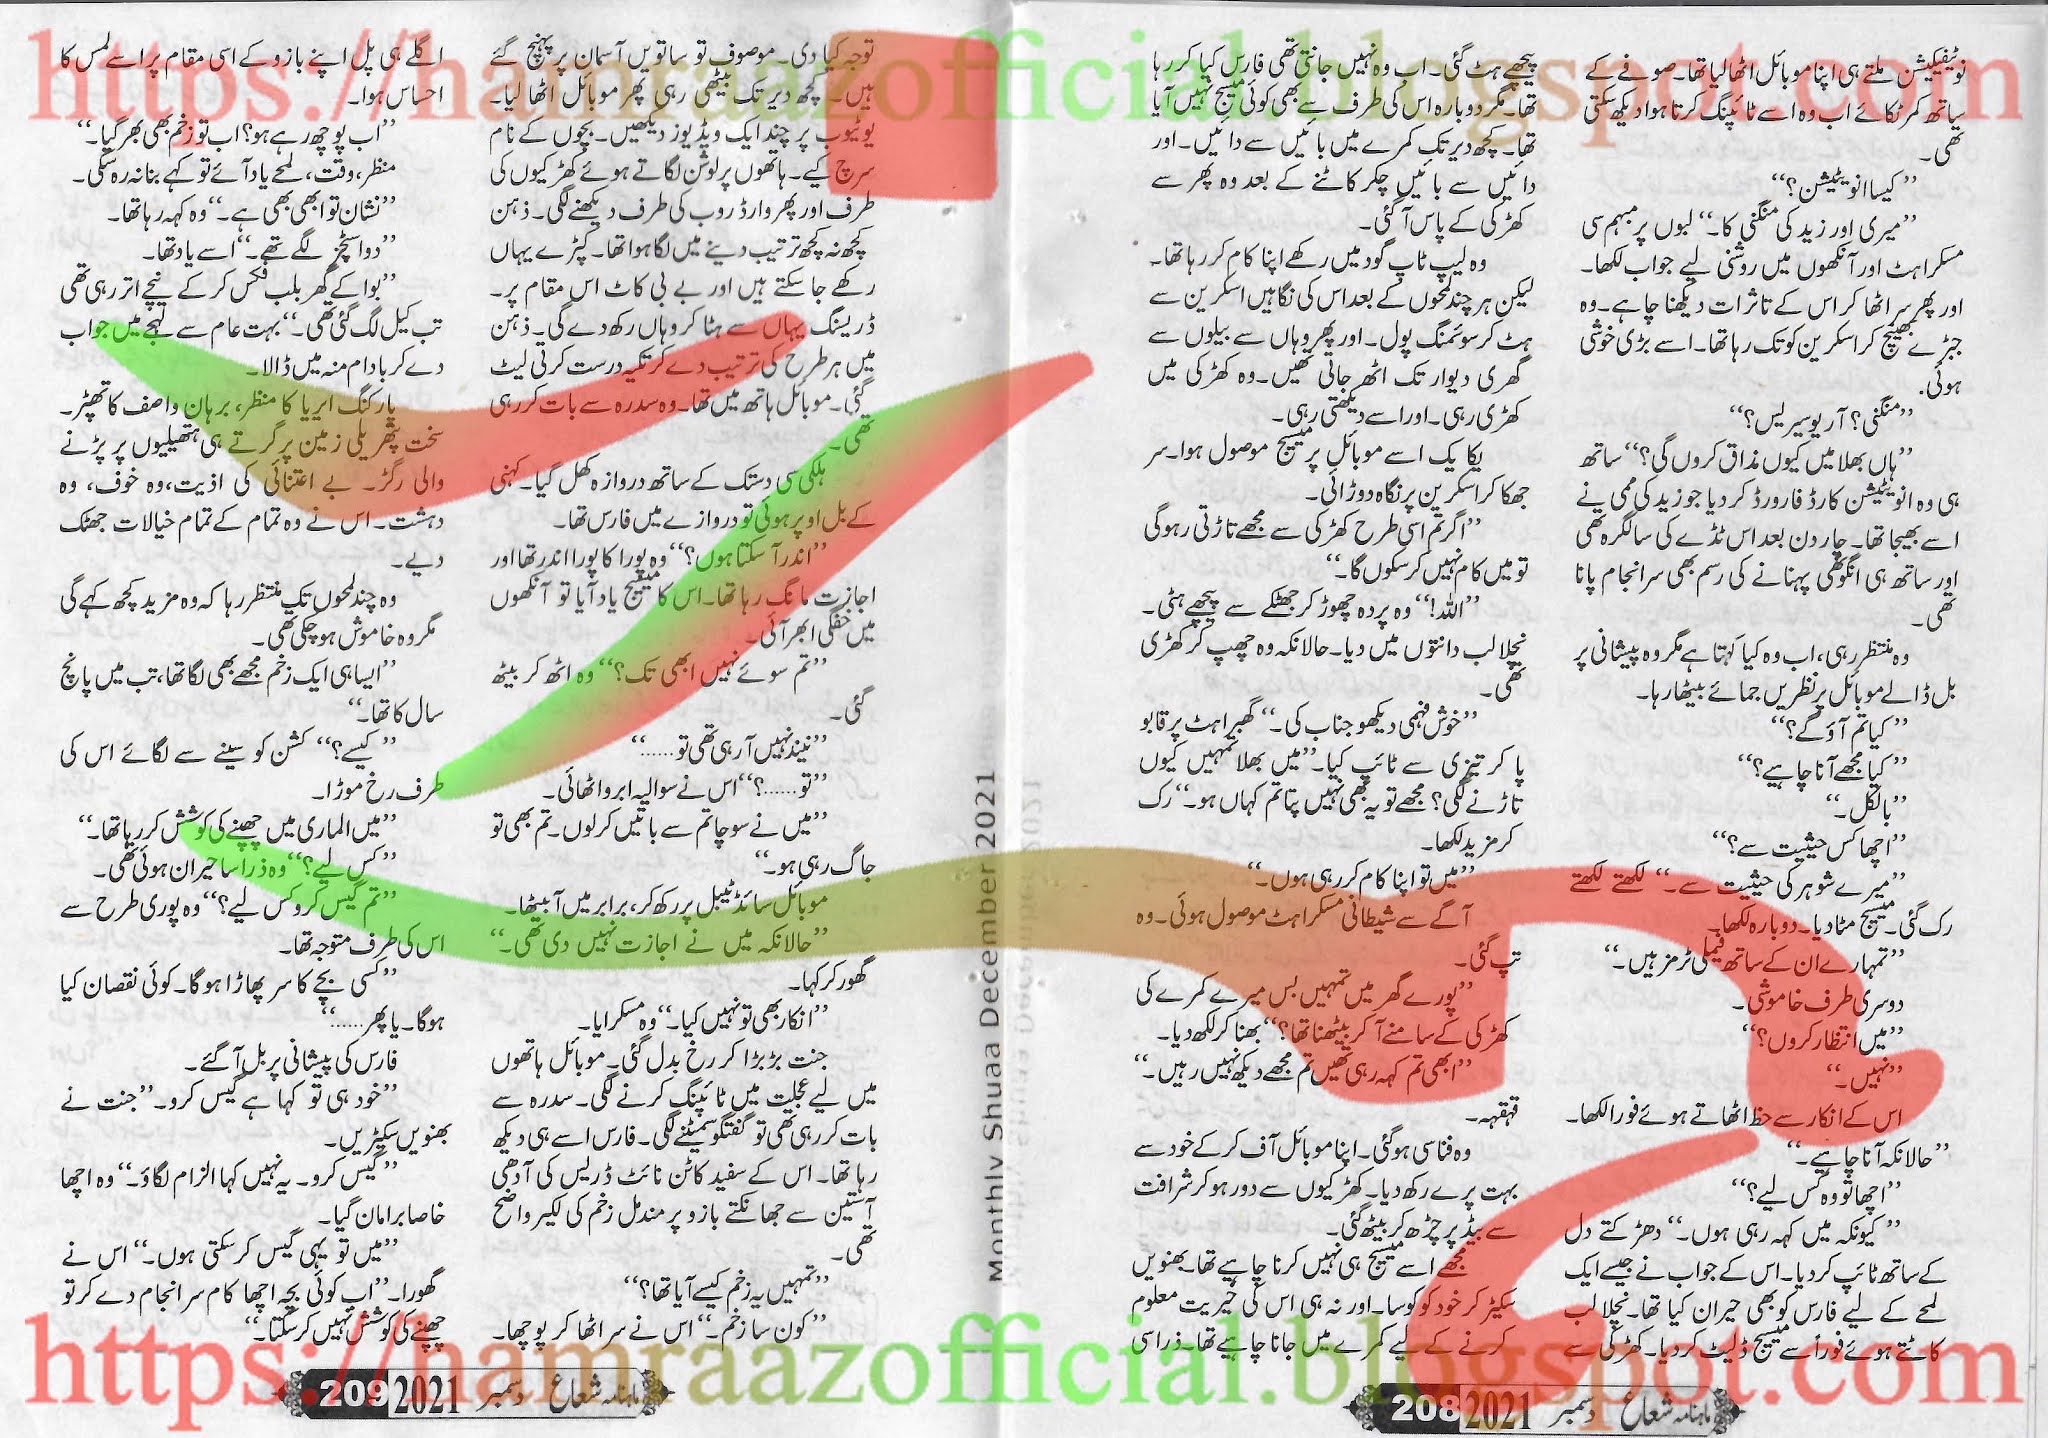 https://hamraazofficial.blogspot.com
نوٹیفکیشن ملتے ہی اپنا موبائل اٹھا لیا تھا۔ صوفے کے
ساتھ کمر ٹکائے اب وہ اسے ٹائپنگ کرتا ہوا دیکھ سکتی
تھی۔
’’کیسا انویٹیشن؟‘‘
’’میری اور زید کی منگنی کا۔‘‘ لبوں پر مبہم سی
مسکراہٹ اور آنکھوں میں روشنی لیے جواب لکھا۔
اور پھر سر اٹھا کر اس کے تاثرات دیکھنا چاہے۔ وہ
جبڑے بھینچ کر اسکرین کو تک رہا تھا۔ اسے بڑی خوشی
ہوئی۔
’’منگنی؟ آر یو سیریس؟‘‘
’’ہاں بھلا میں کیوں مذاق کروں گی؟‘‘ ساتھ
ہی وہ انویٹیشن کارڈ فارورڈ کر دیا جو زید کی ممی نے
اسے بھیجا تھا۔ چار دن بعد اس ٹڈے کی سالگرہ تھی
اور ساتھ ہی انگوٹھی پہنانے کی رسم بھی سرانجام پانا
تھی۔
وہ منتظر رہی، اب وہ کیا کہتا ہے مگر وہ پیشانی پر
بل ڈالے موبائل پر نظریں جمائے بیٹھا رہا۔
’’کیا تم آؤ گے؟‘‘
’’کیا مجھے آنا چاہیے؟‘‘
’’بالکل۔‘‘
’’اچھا کس حیثیت سے؟‘‘
’’میرے شوہر کی حیثیت سے۔‘‘ لکھتے لکھتے
رک گئی۔ میسج مٹا دیا۔ دوبارہ لکھا۔
’’تمہارے ان کے ساتھ فیملی ٹرمز ہیں۔‘‘
دوسری طرف خاموشی۔
’’میں انتظار کروں؟‘‘
’’نہیں۔‘‘
اس کے انکار سے حظ اٹھاتے ہوئے فورا لکھا۔
’’حالانکہ آنا چاہیے۔‘‘
’’اچھا تو وہ کس لیے؟‘‘
’’کیونکہ میں کہہ رہی ہوں۔‘‘ دھڑکتے دل
کے ساتھ ٹائپ کر دیا۔ اس کے جواب نے جیسے ایک
لمحے کے لیے فارس کو بھی حیران کیا تھا۔ نچلا لب
کاٹتے ہوئے فوراً سے میسج ڈلیٹ کر دیا۔ کھڑکی سے
پیچھے ہٹ گئی۔ اب وہ نہیں جانتی تھی فارس کیا کر رہا
تھا۔ مگر دوبارہ اس کی طرف سے بھی کوئی میسج نہیں آیا
تھا۔ کچھ دیر تک کمرے میں بائیں سے دائیں۔ اور
دائیں سے بائیں چکر کاٹنے کے بعد وہ پھر سے
کھڑکی کے پاس آ گئی۔
وہ لیپ ٹاپ گود میں رکھے اپنا کام کر رہا تھا۔
لیکن ہر چند لمحوں کے بعد اس کی نگاہیں اسکرین سے
ہٹ کر سوئمنگ پول۔ اور پھر وہاں سے بیلوں سے
گھری دیوار تک اٹھ جاتی تھیں۔ وہ کھڑکی میں
کھڑی رہی۔ اور اسے دیکھتی رہی۔
یکایک اسے موبائل پر میسج موصول ہوا۔ سر
جھکا کر اسکرین پر نگاہ دوڑائی۔
’’اگر تم اسی طرح کھڑکی سے مجھے تاڑتی رہو گی
تو میں کام نہیں کر سکوں گا۔‘‘
’’اللہ!‘‘ وہ پردہ چھوڑ کر جھٹکے سے پیچھے ہٹی۔
نچلا لب دانتوں میں دیا۔ حالانکہ وہ چھپ کر کھڑی
تھی۔
’’خوش فہمی دیکھو جناب کی۔‘‘ گھبراہٹ پر قابو
پا کر تیزی سے ٹائپ کیا۔ ’’میں بھلا تمہیں کیوں
تاڑنے لگی؟ مجھے تو یہ بھی نہیں پتا تم کہاں ہو۔‘‘ رک
کر مزید لکھا۔
’’میں تو اپنا کام کر رہی ہوں۔‘‘
آگے سے شیطانی مسکراہٹ موصول ہوئی۔ وہ
تپ گئی۔
’’پورے گھر میں تمہیں بس میرے کمرے کی
کھڑکی کے سامنے آ کر بیٹھنا تھا؟‘‘ بھنا کر لکھ دیا۔
’’ابھی تم کہہ رہی تھیں تم مجھے دیکھ نہیں رہیں۔‘‘
قہقہہ۔
وہ فنا سی ہو گئی۔ اپنا موبائل آف کر کے خود سے
بہت پرے رکھ دیا۔ کھڑکیوں سے دور ہو کر شرافت
سے بیڈ پر چڑھ کر بیٹھ گئی۔
مجھے اسے میسج ہی نہیں کرنا چاہیے تھا۔ بھنویں
سکیٹر کر خود کو کوسا۔ اور نہ ہی اس کی خیریت معلوم
کرنے کے لیے کمرے میں جانا چاہیے تھا۔ ذرا سی
ماہنامہ شعاع دسمبر 2021 208
توجہ کیا دی۔ موصوف تو ساتویں آسمان پر پہنچ گئے
ہیں۔ کچھ دیر تک بیٹھی رہی پھر موبائل اٹھا لیا۔
یوٹیوب پر چند ایک ویڈیوز دیکھیں۔ بچوں کے نام
سرچ کیے۔ ہاتھوں پر لوشن لگاتے ہوئے کھڑکیوں کی
طرف اور پھر وارڈ روب کی طرف دیکھنے لگی۔ ذہن
کچھ نہ کچھ ترتیب دینے میں لگا ہوا تھا۔ کپڑے یہاں
رکھے جا سکتے ہیں اور بے بی کاٹ اس مقام پر۔
ڈریسنگ یہاں سے ہٹا کر وہاں رکھ دے گی۔ ذہن
میں ہر طرح کی ترتیب دے کر تکیہ درست کرتی لیٹ
گئی۔ موبائل ہاتھ میں تھا۔ وہ سدرہ سے بات کر رہی
تھی۔
ہلکی سی دستک کے ساتھ دروازہ کھل گیا۔ کہنی
کے بل اوپر ہوئی تو دروازے میں فارس تھا۔
’’اندر آ سکتا ہوں؟‘‘ وہ پورا کا پورا اندر تھا اور
اجازت مانگ رہا تھا۔ اس کا میسج یاد آیا تو آنکھوں
میں خفگی ابھر آئی۔
’’تم سوئے نہیں ابھی تک؟‘‘ وہ اٹھ کر بیٹھ
گئی۔
’’نیند نہیں آ رہی تھی تو......‘‘
’’تو......؟‘‘ اس نے سوالیہ ابرو اٹھائی۔
’’میں نے سوچا تم سے باتیں کر لوں۔ تم بھی تو
جاگ رہی ہو۔‘‘
موبائل سائڈ ٹیبل پر رکھ کر، برابر میں آ بیٹھا۔
’’حالانکہ میں نے اجازت نہیں دی تھی۔‘‘
گھور کر کہا۔
’’انکار بھی تو نہیں کیا۔‘‘ وہ مسکرایا۔
جنت بڑبڑا کر رخ بدل گئی۔ موبائل ہاتھوں
میں لیے عجلت میں ٹائپنگ کرنے لگی۔ سدرہ سے
بات کر رہی تھی تو گفتگو سمیٹنے لگی۔ فارس اسے ہی دیکھ
رہا تھا۔ اس کے سفید کاٹن نائٹ ڈریس کی آدھی
آستین سے جھانکتے بازو پر مندمل زخم کی لکیر واضح
تھی۔
’’تمہیں یہ زخم کیسے آیا تھا؟‘‘
’’کون سا زخم۔‘‘ اس نے سر اٹھا کر پوچھا۔
اگلے ہی پل اپنے بازو کے اسی مقام پر اسے لمس کا
احساس ہوا۔
’’اب پوچھ رہے ہو؟ اب تو زخم بھی بھر گیا۔‘‘
منظر، وقت، لمحے یاد آئے تو کہے بنا نہ رہ سکی۔
’’نشان تو ابھی بھی ہے۔‘‘ وہ کہہ رہا تھا۔
’’دو اسٹچز لگے تھے۔‘‘ اسے یاد تھا۔
’’بوا کے گھر بلب فکس کر کے نیچے اتر رہی تھی
تب کیل لگ گئی تھی۔‘‘ بہت عام سے لہجے میں جواب
دے کر بادام منہ میں ڈالا۔
پارکنگ ایریا کا منظر، برہان واصف کا تھپڑ۔
سخت پتھریلی زمین پر گرتے ہی ہتھیلیوں پر پڑنے
والی رگڑ۔ بے اعتنائی کی اذیت، وہ خوف، وہ
دہشت۔ اس نے وہ تمام کے تمام خیالات جھٹک
دیے۔
وہ چند لمحوں تک منتظر رہا کہ وہ مزید کچھ کہے گی
مگر وہ خاموش ہو چکی تھی۔
’’ایسا ہی ایک زخم مجھے بھی لگا تھا، تب میں پانچ
سال کا تھا۔‘‘
’’کیسے؟‘‘ کشن کو سینے سے لگائے اس کی
طرف رخ موڑا۔
’’میں الماری میں چھپنے کی کوشش کر رہا تھا۔‘‘
’’کس لیے؟‘‘ وہ ذرا سا حیران ہوئی تھی۔
’’تم گیس کرو کس لیے؟‘‘ وہ پوری طرح سے
اس کی طرف متوجہ تھا۔
’’کسی بچے کا سر پھاڑا ہوگا۔ کوئی نقصان کیا
ہوگا۔ یا پھر......‘‘
فارس کی پیشانی پر بل آ گئے۔
’’خود ہی تو کہا ہے گیس کرو۔‘‘ جنت نے
بھنویں سکیٹریں۔
’’گیس کرو۔ یہ نہیں کہا الزام لگاؤ۔‘‘ وہ اچھا
خاصا برا مان گیا۔
’’میں تو یہی گیس کر سکتی ہوں۔‘‘ اس نے
گھورا۔ ’’اب کوئی بچہ اچھا کام سرانجام دے کر تو
چھپنے کی کوشش نہیں کر سکتا۔‘‘
ماہنامہ شعاع دسمبر 2021 209
Monthly Shuaa December 2021
https://hamraazofficial.blogspot.com